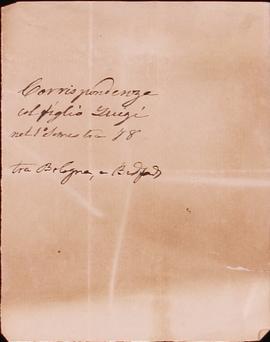 Corrispondenze
col figlio Luigi
nel 1° Semestre 78
tra Bologna, e Bedford